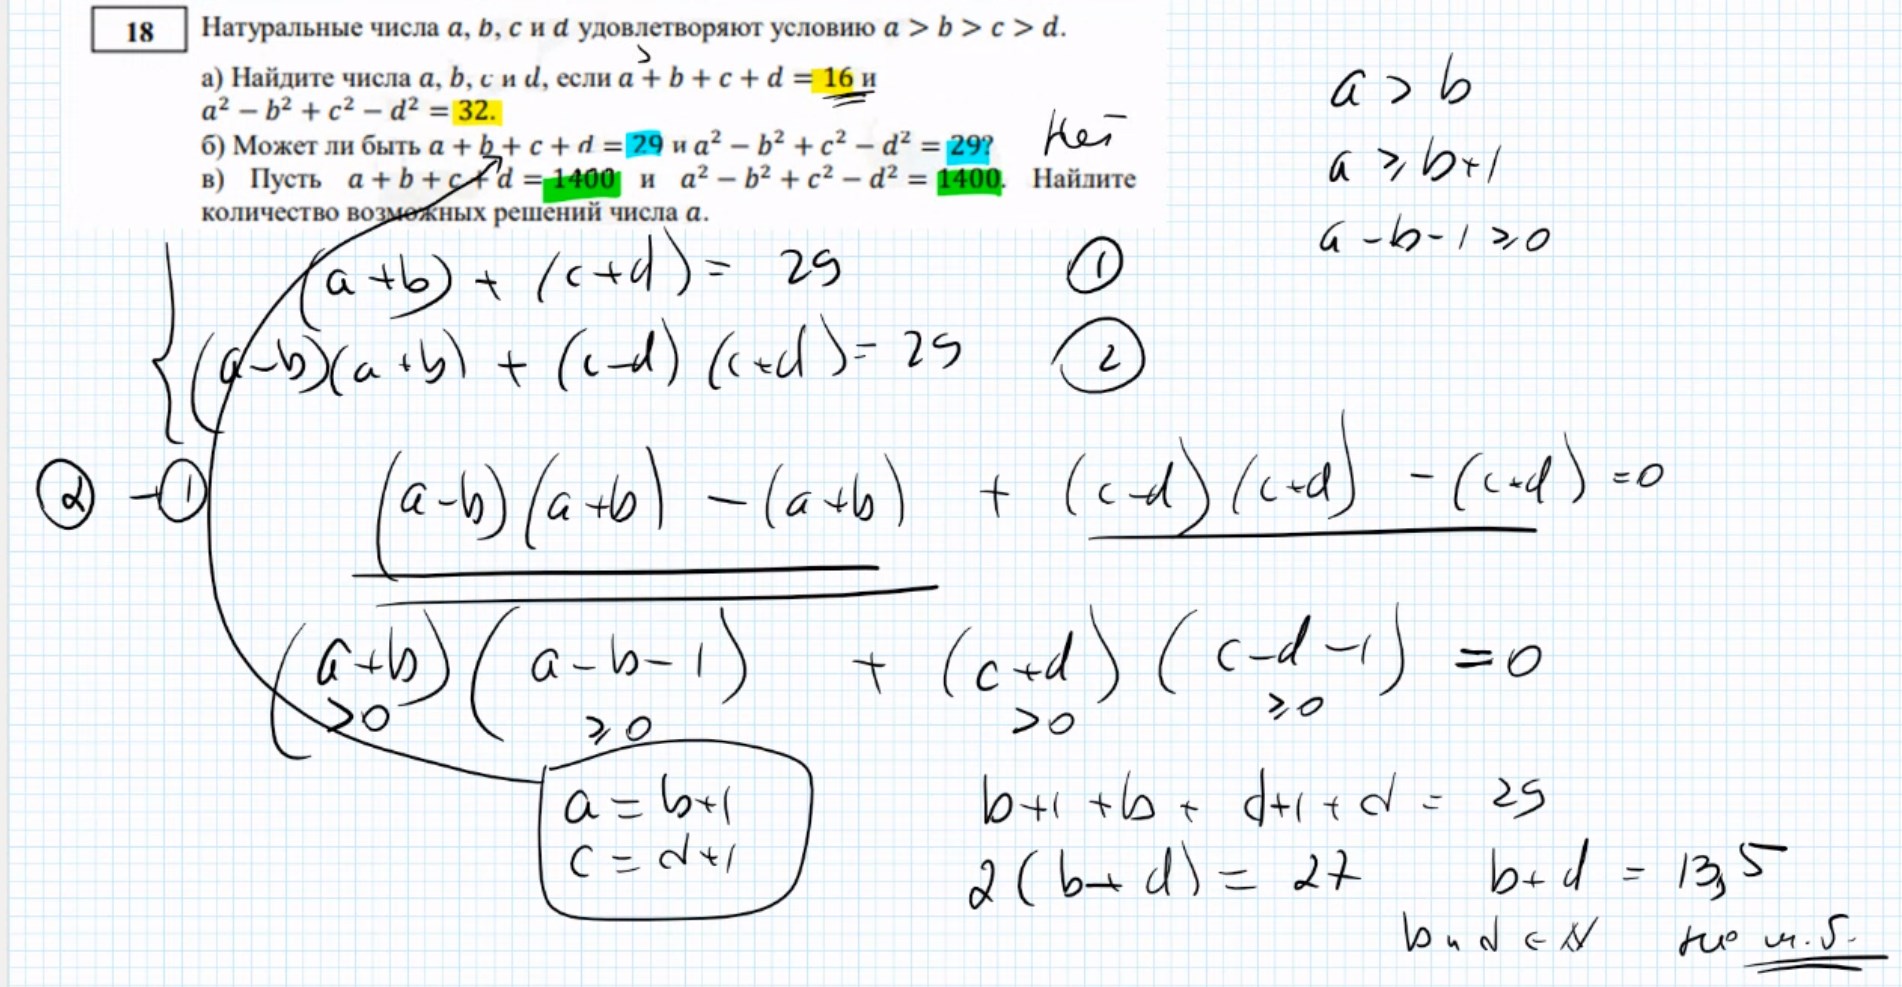 18 Натуральные числа a, b, c и d удовлетворяют условию a > b > c > d.
а) Найдите числа a, b, c и d, если a + b + c + d = 16 и
a² − b² + c² − d² = 32.
б) Может ли быть a + b + c + d = 29 и a² − b² + c² − d² = 29? Нет
в) Пусть a + b + c + d = 1400 и a² − b² + c² − d² = 1400. Найдите
количество возможных решений числа a.
a > b
a ⩾ b+1
a − b − 1 ⩾ 0
(a+b) + (c+d) = 29 ①
(a−b)(a+b) + (c−d)(c+d) = 29 ②
② − ① (a−b)(a+b) − (a+b) + (c−d)(c+d) − (c+d) = 0
(a+b)(a−b−1) + (c+d)(c−d−1) = 0
>0 ⩾0 >0 ⩾0
a = b+1
c = d+1
b+1+b+d+1+d = 29
2(b+d) = 27 b+d = 13,5
b и d ∈ N не м.б.